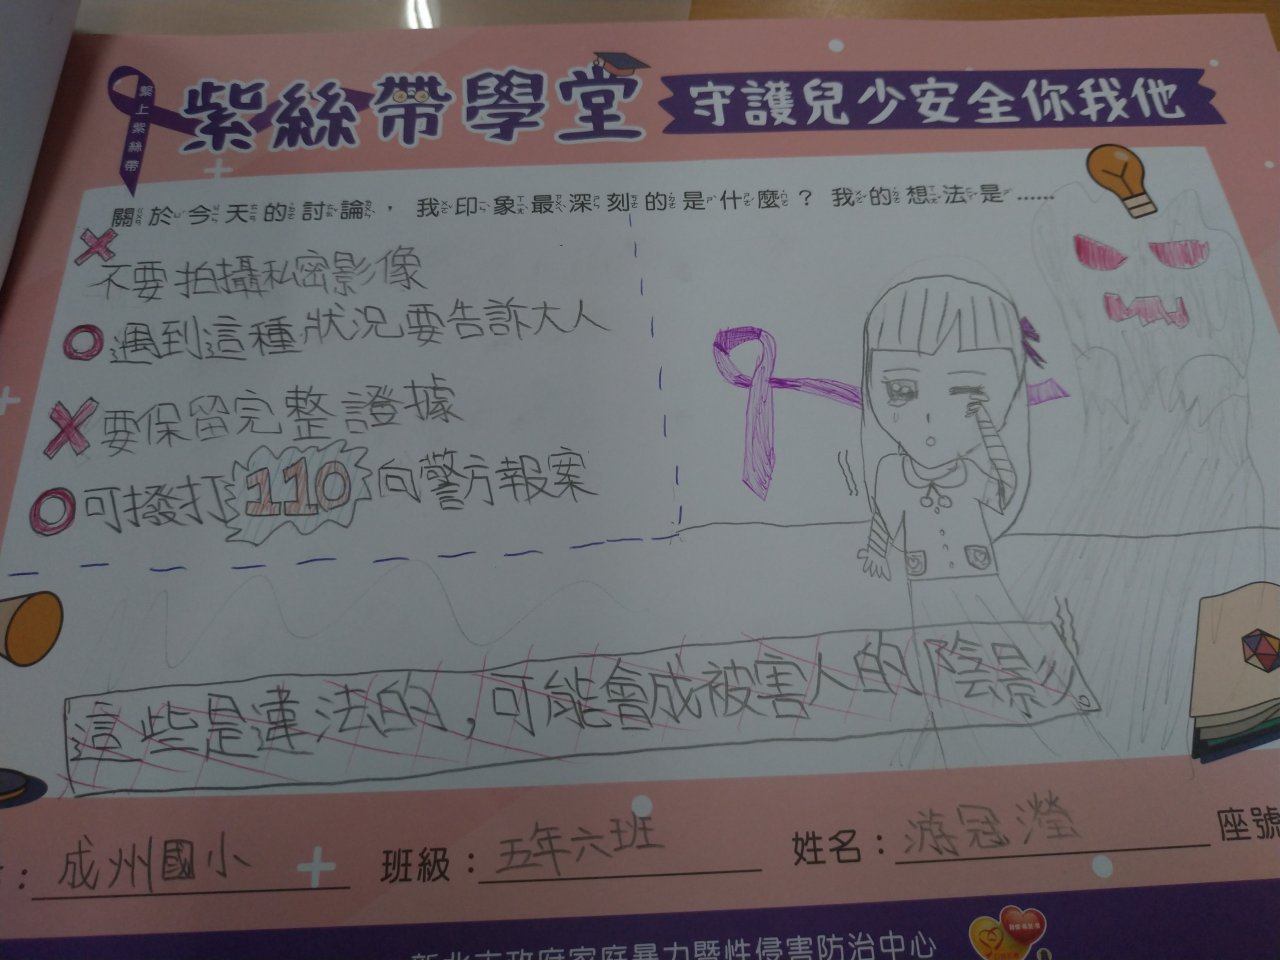 繫上紫絲帶
紫絲帶學堂
守護兒少安全你我他
關於今天的討論，我印象最深刻的是什麼？我的想法是……
不要拍攝私密影像
遇到這種狀況要告訴大人
要保留完整證據
可撥打110向警方報案
這些是違法的，可能會成被害人的陰影。
成州國小
班級：五年六班
姓名：游冠瀅
座號
新北市政府家庭暴力暨性侵害防治中心